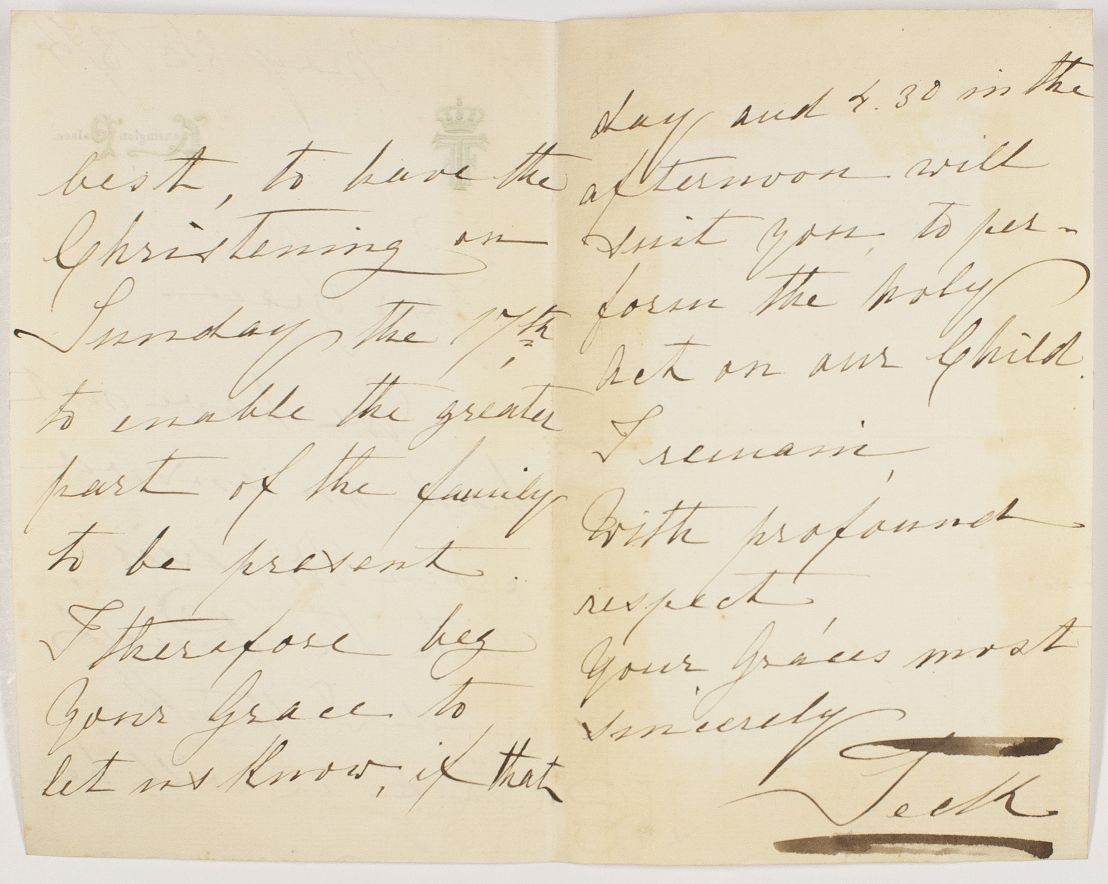 best, to have the
Christening on
Sunday the 17th,
to enable the greater
part of the family
to be present.
I therefore beg
Your Grace to
let us Know, if that
day and 4.30 in the
afternoon will
suit you, to per-
form the holy
act on our Child.
I remain,
With profound
respect
Your Grace's most
sincerely
Teck
Kensington Palace